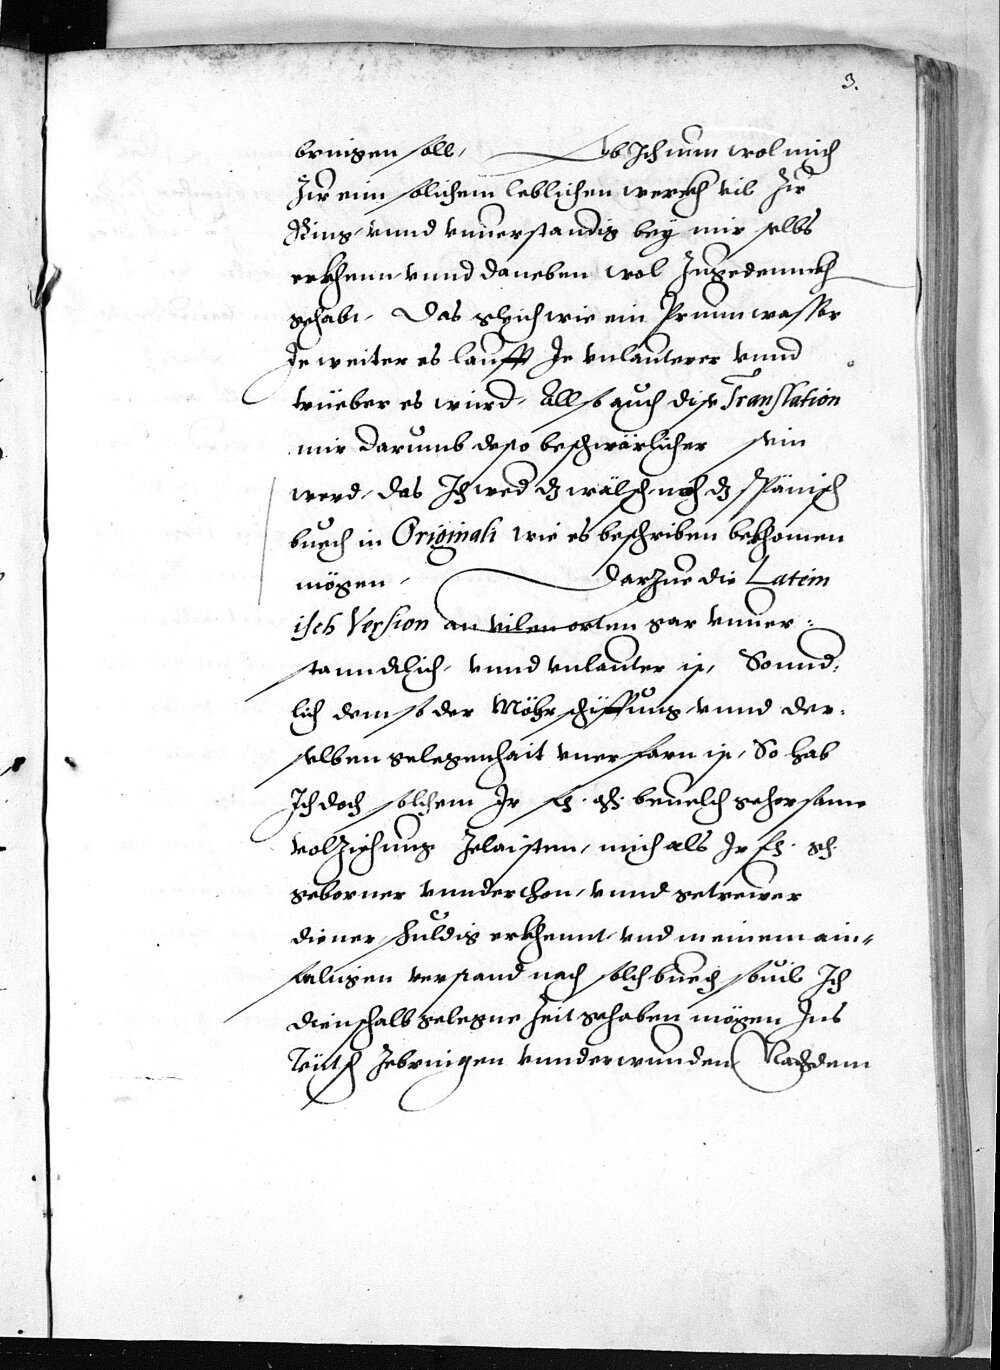 3.
bringen soll, Ob Ich nun wol mich
Zu ainn solichem leblichen werckh vil Zu
Ring, vnnd vnuerstandig bey mir selbs
erkhenn, vnnd daneben wol Ingedennckh
gehabt, Das gleich wie ein Prunnwasser
Je weiter es laufft Je vnlauterer vnnd
trüeber es wurd, Allso auch dise Translation
mir darumb desto beschwärlicher sein
werd, das Ich wed dz wälsch, noch dz Spänisch
buech in Originali wie es beschriben bekhomen
mögen, Darzue die Latein
isch Version an vilen orten gar vnuer:
stanndtlich, vnnd vnlauter ist, Sonnd:
lich dem so der Möhrschiffung, vnnd der:
selben gelegenhait vnerfarn ist, So hab
Ich doch solchem Jr fr. gn. beuelch gehorsame
volziehung Zelaisten, mich als Jr fr. gn.
geborner vnnderthon, vnnd getrewer
diener schuldig erkhennt, vnd meinem ain=
faltigen verstand nach solch buech, souil Ich
diensthalb gelegne Zeit gehaben mögen Ins
Teütsch Zebringen vnnderwunden, Nachdem